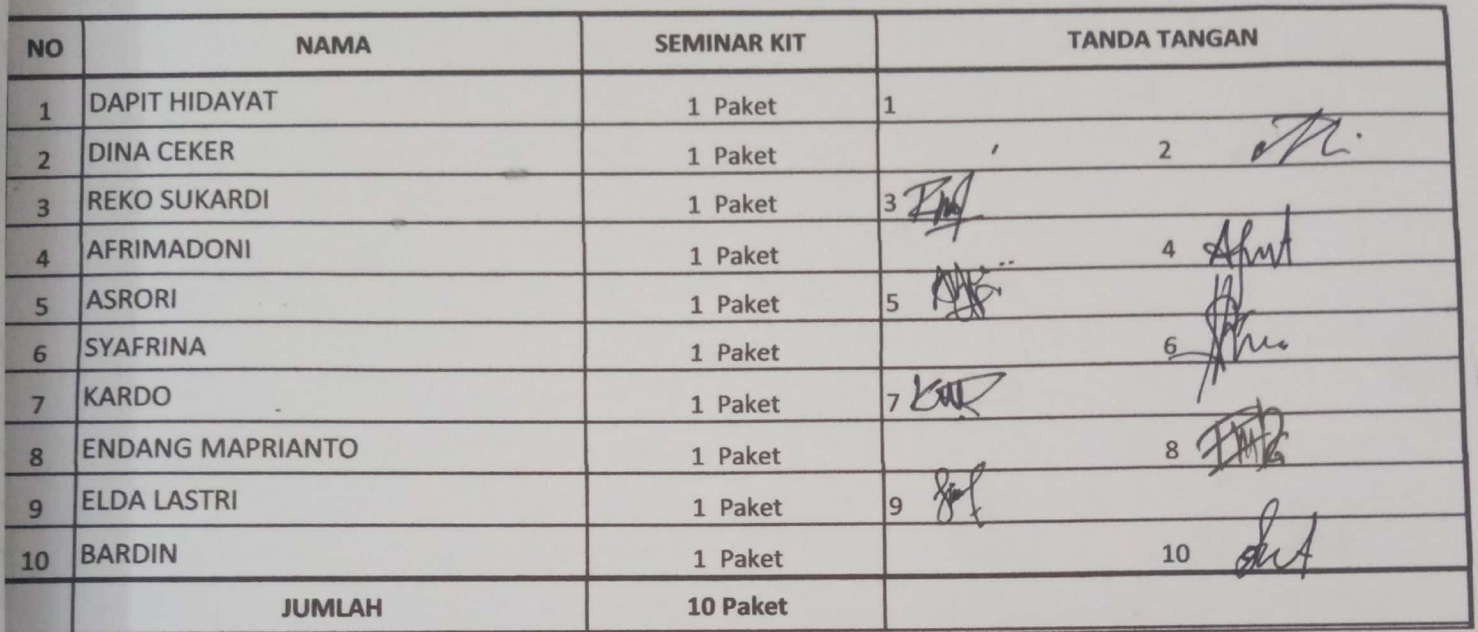 NO NAMA SEMINAR KIT TANDA TANGAN
1 DAPIT HIDAYAT 1 Paket 1
2 DINA CEKER 1 Paket 2
3 REKO SUKARDI 1 Paket 3
4 AFRIMADONI 1 Paket 4
5 ASRORI 1 Paket 5
6 SYAFRINA 1 Paket 6
7 KARDO 1 Paket 7
8 ENDANG MAPRIANTO 1 Paket 8
9 ELDA LASTRI 1 Paket 9
10 BARDIN 1 Paket 10
JUMLAH 10 Paket